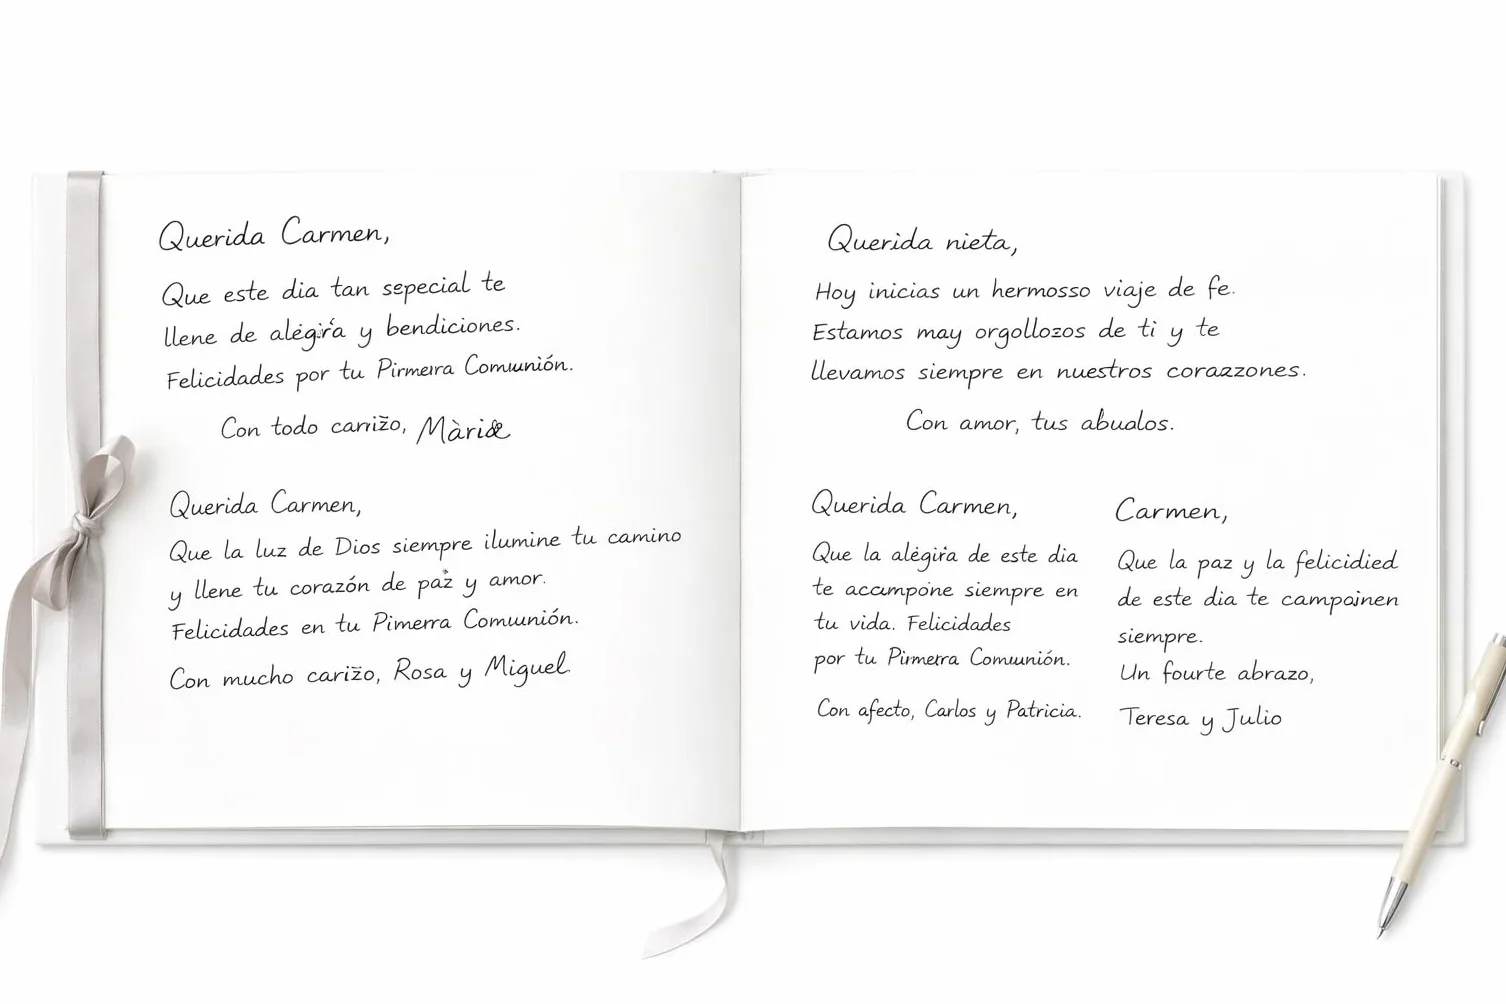 Querida Carmen,
Que este dia tan sepecial te
llene de alégira y bendiciones.
Felicidades por tu Pirmerra Comuunión.
Con todo carrižo,
Querida Carmen,
Que la luz de Dios siempre ilumine tu camino
y llene tu corazón de paz y amor.
Felicidades en tu Pimerra Comuunión.
Con mucho carižo, Rosa y Miguel
Querida nieta,
Hoy inicias un hermosso viaje de fe.
Estamos may orgollozos de ti y te
llevamos siempre en nuestros corazzones.
Con amor, tus abualos.
Querida Carmen,
Que la alégira de este dia
te accumpone siempre en
tu vida. Felicidades
por tu Pirmerra Comuunión.
Con afecto, Carlos y Patricia.
Carmen,
Que la paz y la felicidied
de este dia te campoinen
siempre.
Un fourte abrazo,
Teresa y Julio